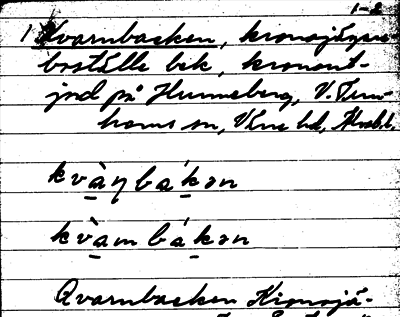 1-2
1) Kvarnbacken, kronojägare-
boställe bek, kronont-
jord på Hunneberg, V. Tun-
hems sn, Väne hd, Älvsb.l.
kvàɳbákən
kvàmbákən
Qvarnbacken Kronojä-